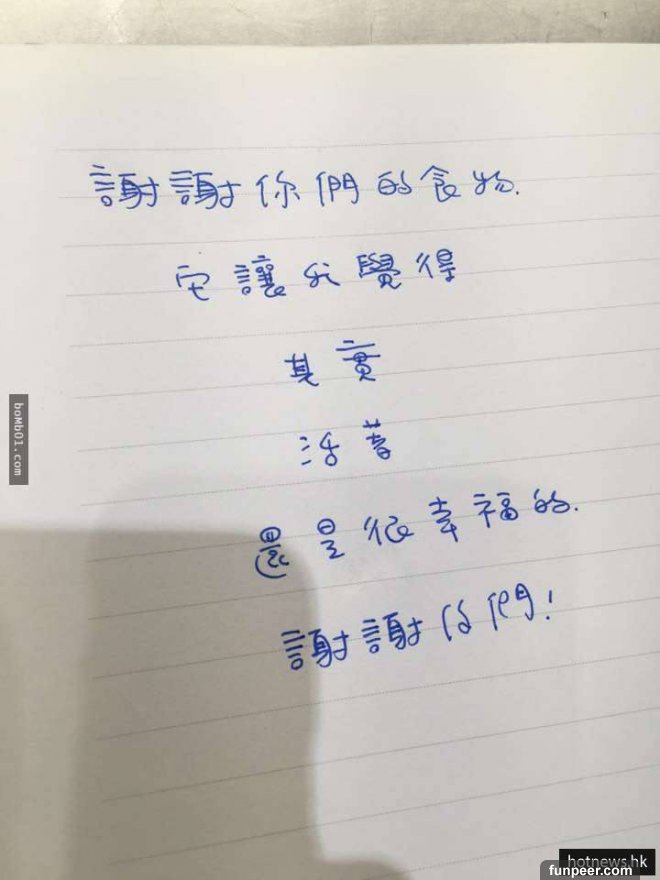 謝謝你們的食物.
它讓我覺得
其實
活著
還是很幸福的.
謝謝你們!
bomb01.com
hotnews.hk
funpeer.com